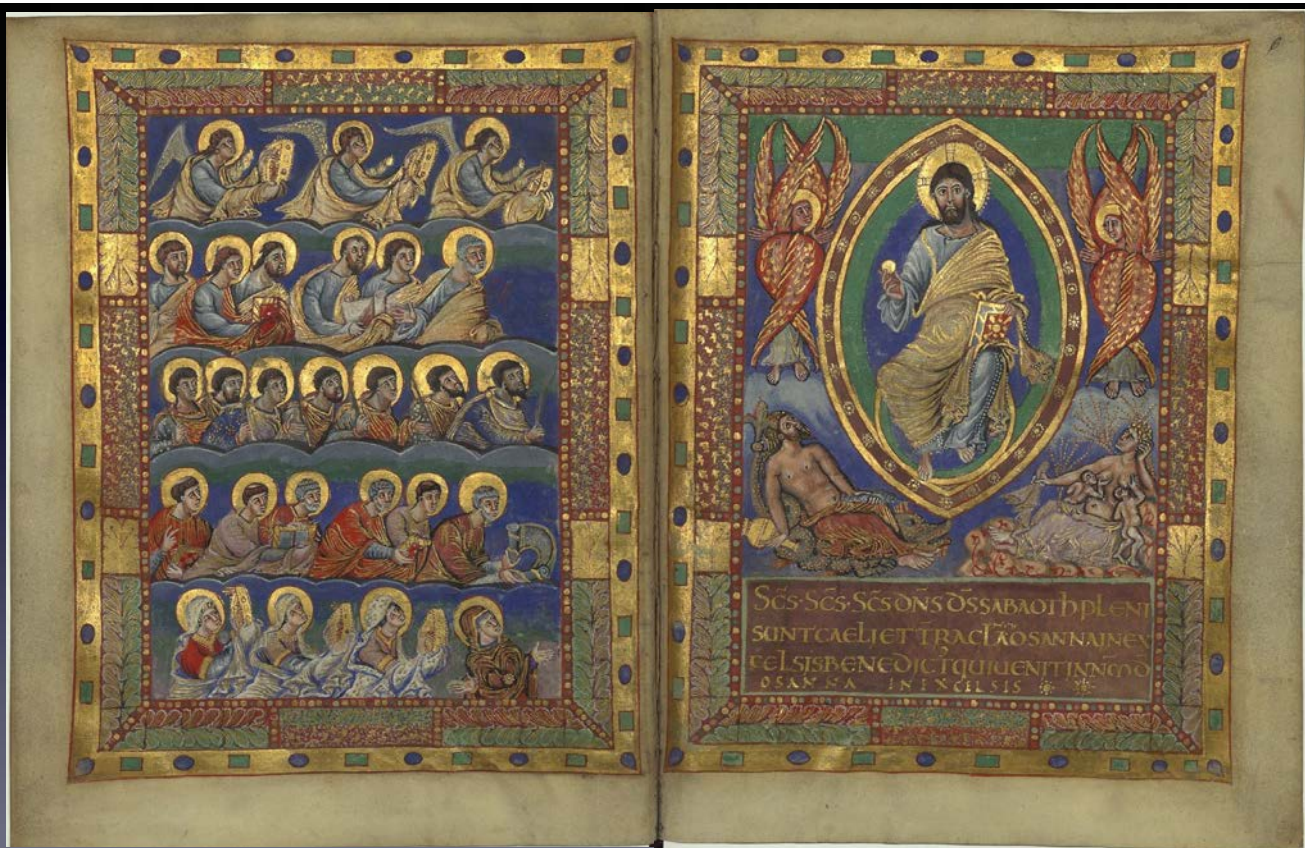 SC̄S·SC̄S·SC̄S DN̄S D̄S SABAOTH PLENI
SUNT CAELI ET T̄RA GL̄Ā OSANNA IN EX
CELSIS BENEDICT QUI UENIT IN N̄M D̄
OSANNA IN EXCELSIS